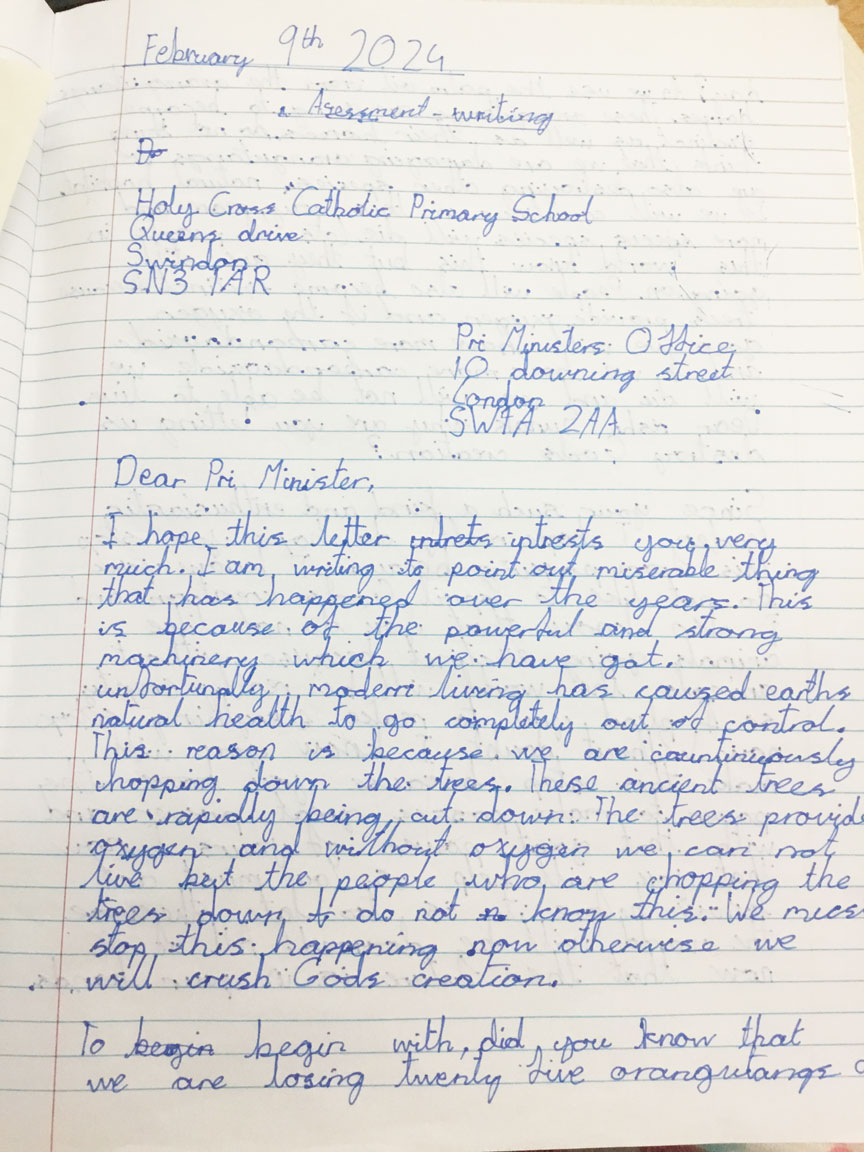 February 9th 2024
Asessment - writing
Holy Cross Catholic Primary School
Queens drive
Swindon
SN3 1AR
Pri Ministers Office
10 downing street
London
SW1A 2AA
Dear Pri Minister,
I hope this letter intrests you very
much. I am writing to point out miserable thing
that has happened over the years. This
is because of the powerful and strong
machinery which we have got.
unfortunally, modern living has caused earths
natural health to go completely out of control.
This reason is because we are countinuously
chopping down the trees. These ancient trees
are rapidly being cut down. The trees provide
oxygen and without oxygen we can not
live but the people who are chopping the
trees down do not know this. We mus
stop this happening now otherwise we
will crush Gods creation.
To begin begin with, did you know that
we are losing twenty five orangutangs